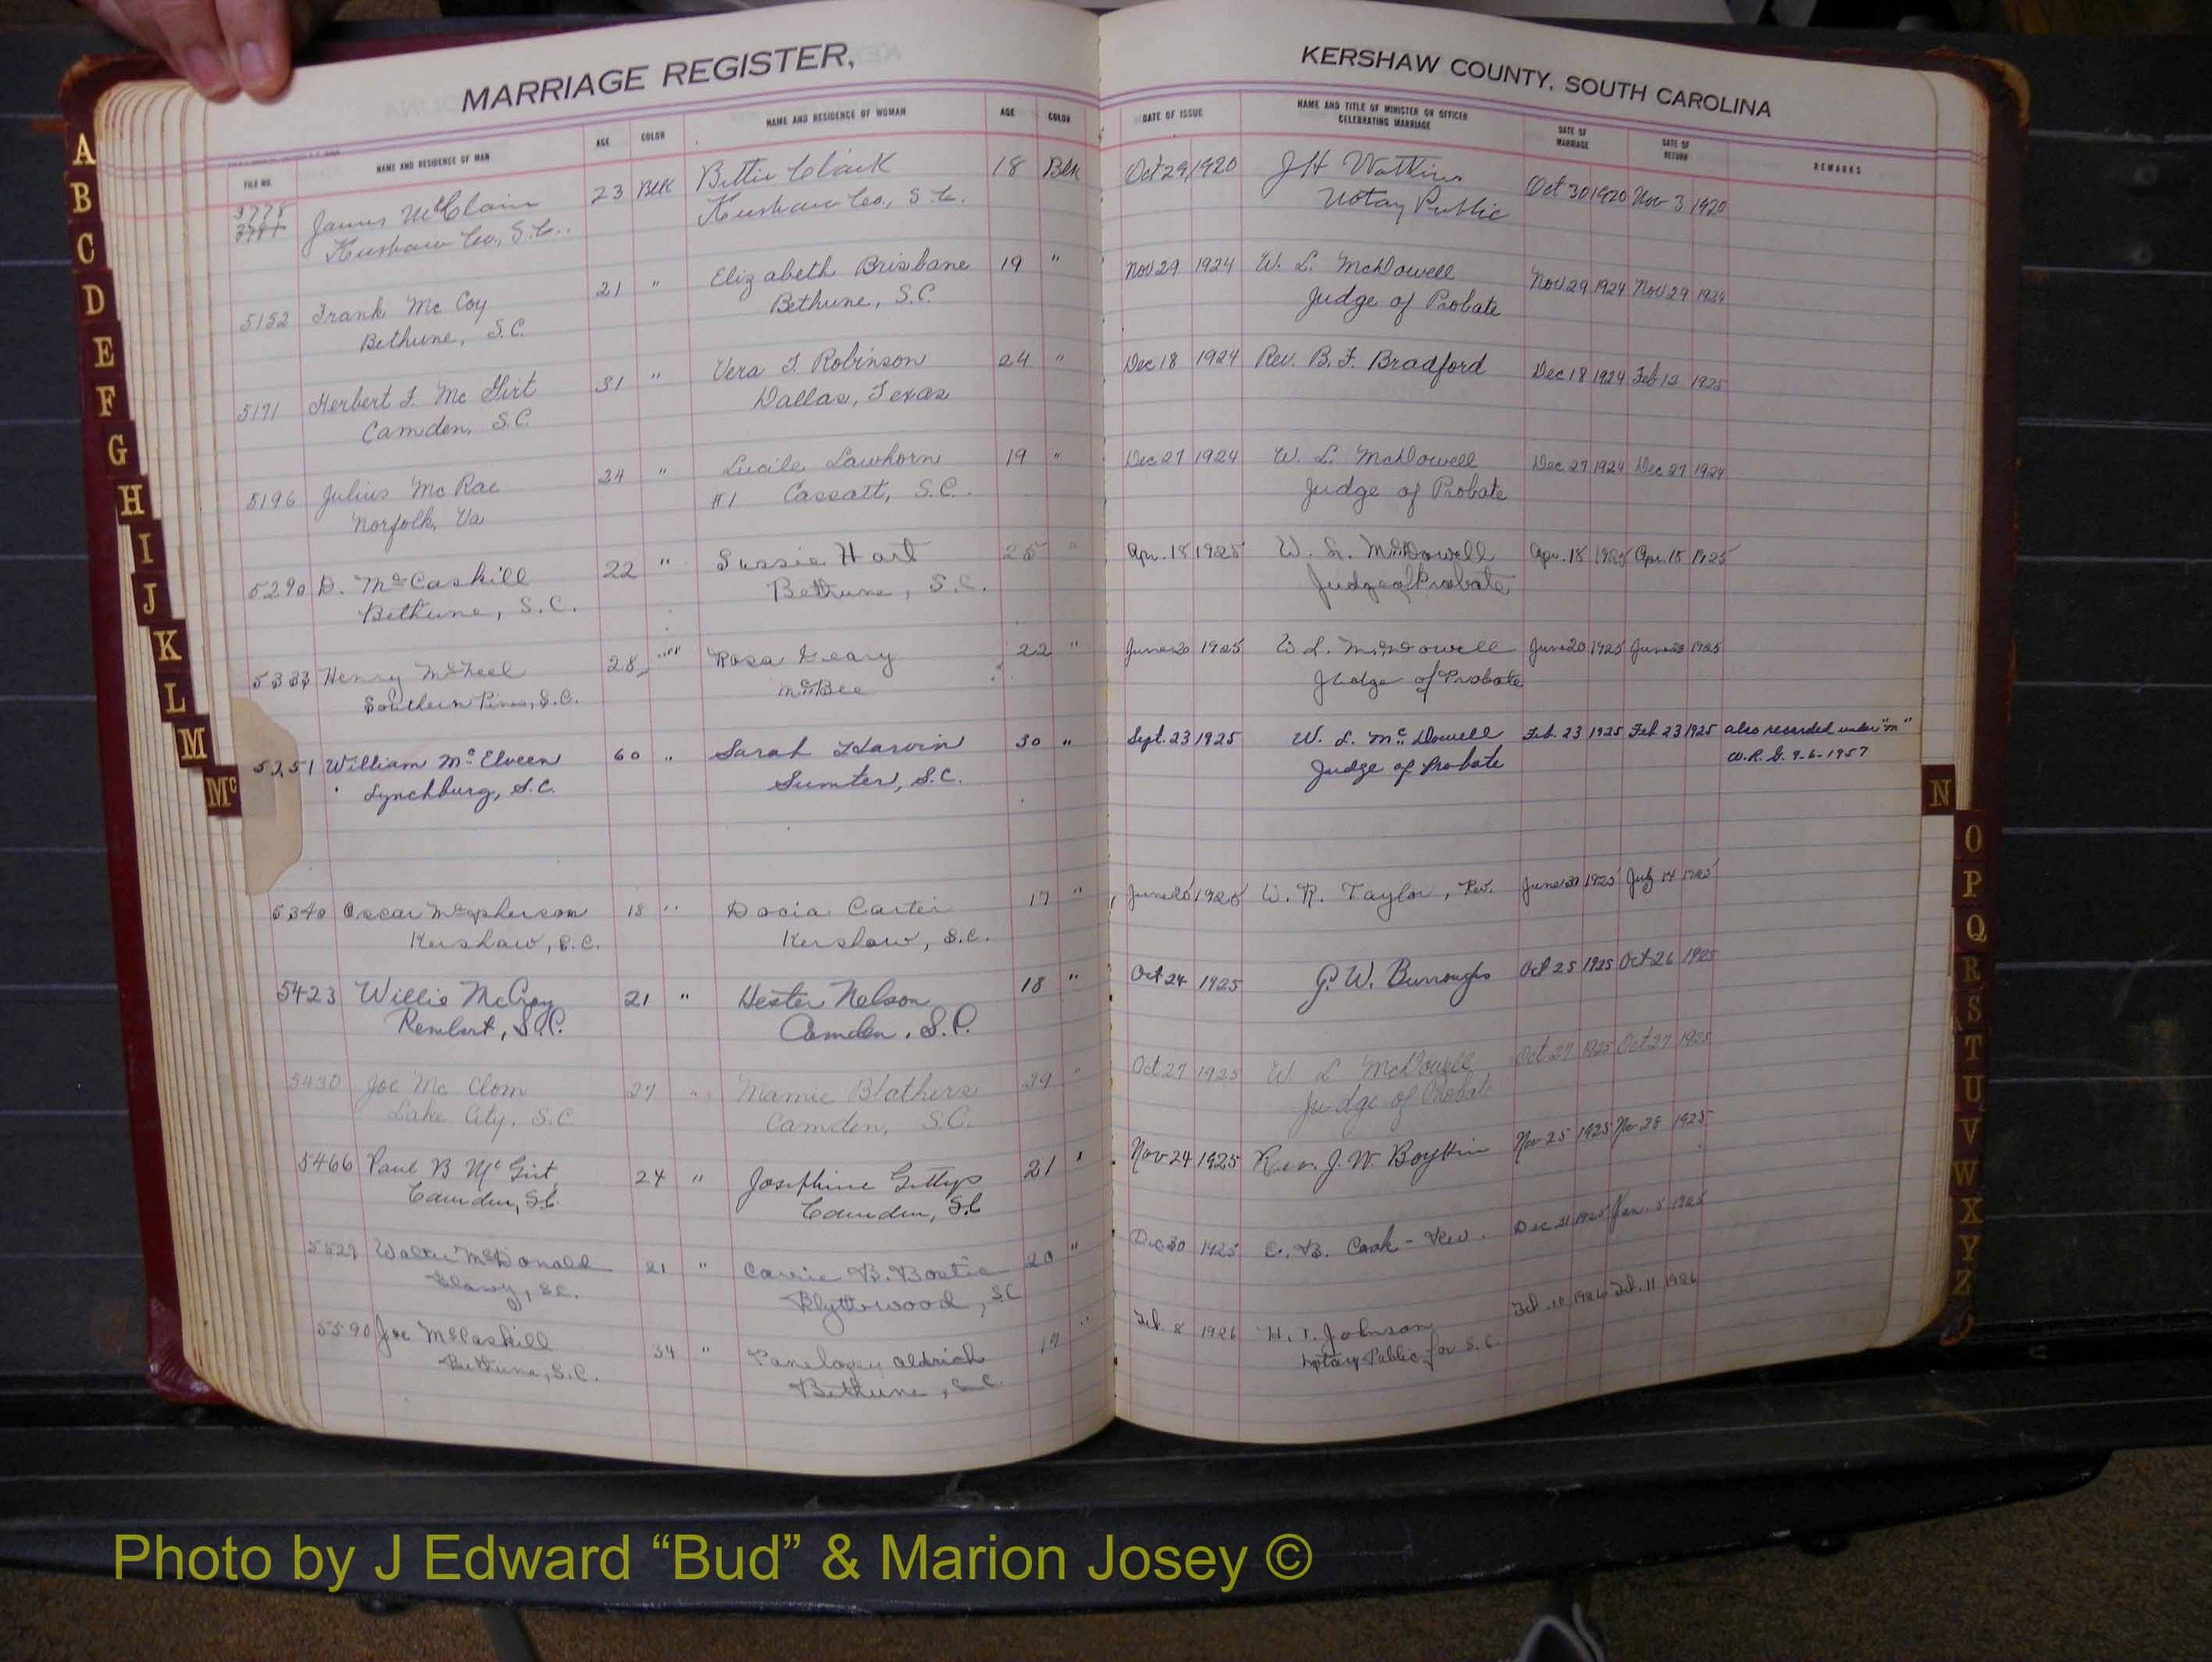 MARRIAGE REGISTER,
FILE NO. NAME AND RESIDENCE OF MAN AGE COLOR NAME AND RESIDENCE OF WOMAN AGE COLOR
3778 James McClain 23 Blk Bettie Clark 18 Blk
Kershaw Co., S.C. Kershaw Co., S.C.
5152 Frank Mc Coy 21 " Elizabeth Brisbane 19 "
Bethune, S.C. Bethune, S.C.
5191 Herbert F. Mc Girt 31 " Vera T. Robinson 24 "
Camden, S.C. Dallas, Texas
5196 Julius Mc Rae 24 " Lucile Lawhorn 19 "
Norfolk, Va #1 Cassatt, S.C.
5290 D. McCaskill 22 " Sussie Hart 25 "
Bethune, S.C. Bethune, S.C.
5333 Henry McNeel 28 " Rosa Geary 22 "
Southern Pines, S.C. McBee
5251 William Mc Elveen 60 " Sarah Harvin 30 "
Lynchburg, S.C. Sumter, S.C.
5340 Oscar Mcpherson 18 " Docia Carter 17 "
Kershaw, S.C. Kershaw, S.C.
5423 Willie McCray 21 " Hester Nelson 18 "
Rembert, S.C. Camden, S.C.
5430 Joe Mc Clom 27 " Mamie Blathers 39 "
Lake City, S.C Camden, S.C.
5466 Paul B McGirt 24 " Josephine Gettys 21 "
Camden, S.C. Camden, S.C
5529 Walter McDonald 21 " Carrie B. Bostic 20 "
S.C. Blythewood, S.C
5590 Joe McCaskill 34 " Aldrich 17 "
Bethune, S.C. Bethune, S.C.
KERSHAW COUNTY, SOUTH CAROLINA
DATE OF ISSUE NAME AND TITLE OF MINISTER OR OFFICER CELEBRATING MARRIAGE DATE OF MARRIAGE DATE OF RETURN REMARKS
Oct 29, 1920 J H Watkins Oct 30 1920 Nov 3 1920
Notary Public
Nov 29 1924 W. L. McDowell Nov 29 1924 Nov 29 1924
Judge of Probate
Dec 18 1924 Rev. B. F. Bradford Dec 18 1924 Feb 12 1925
Dec 27 1924 W. L. McDowell Dec 27 1924 Dec 27 1924
Judge of Probate
Apr. 18 1925 W. L. McDowell Apr. 18 1925 Apr. 18 1925
Judge of Probate
June 20 1925 W L. McDowell June 20 1925 June 20 1925
Judge of Probate
Sept. 23 1925 W. L. Mc Dowell Feb. 23 1925 Feb 23 1925 also recorded under "M"
Judge of Probate W.R.G. 9-6-1957
June 1925 W. R. Taylor, Rev. June 1925 July 14 1925
Oct 24 1925 G. W. Burroughs Oct 25 1925 Oct 26 1925
Oct 27 1925 W L McDowell Oct 27 1925 Oct 27 1925
Judge of Probate
Nov 24 1925 Rev. J. W. Boykin Nov 25 1925 Nov 28 1925
Dec 30 1925 B. Cook - Rev. Dec 31 1925 Jan. 5 1925
Feb. 8 1926 H. T. Johnson Feb. 10 1926 Feb. 11 1926
Notary Public for S.C.
A
B
C
D
E
F
G
H
I
J
K
L
M
Mc
N
O
P
Q
R
S
T
U
V
W
X
Y
Z
Photo by J Edward “Bud” & Marion Josey ©